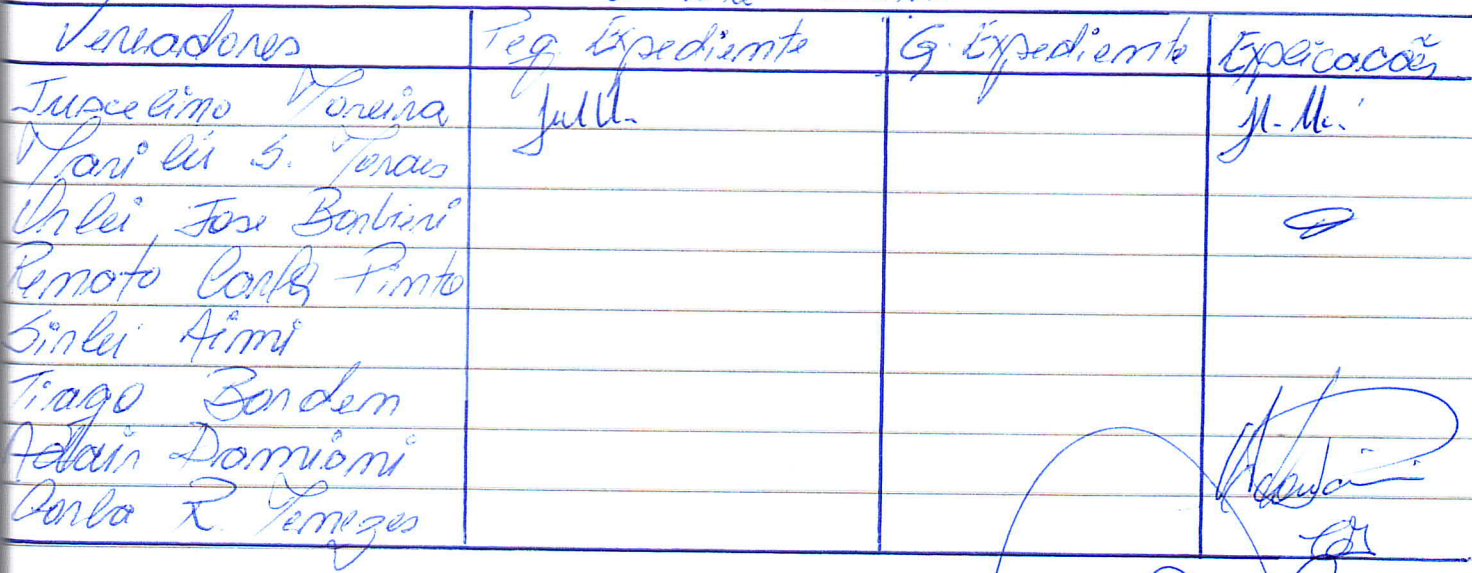 Vereadores Peq. Expediente G. Expediente Explicacões
Juscelino Moreira
Marilú S. Morais
Orlei Jose Barbieri
Renato Carlos Pinto
Sirlei Aimi
Tiago Borden
Adair Damiani
Carla R. Menezes